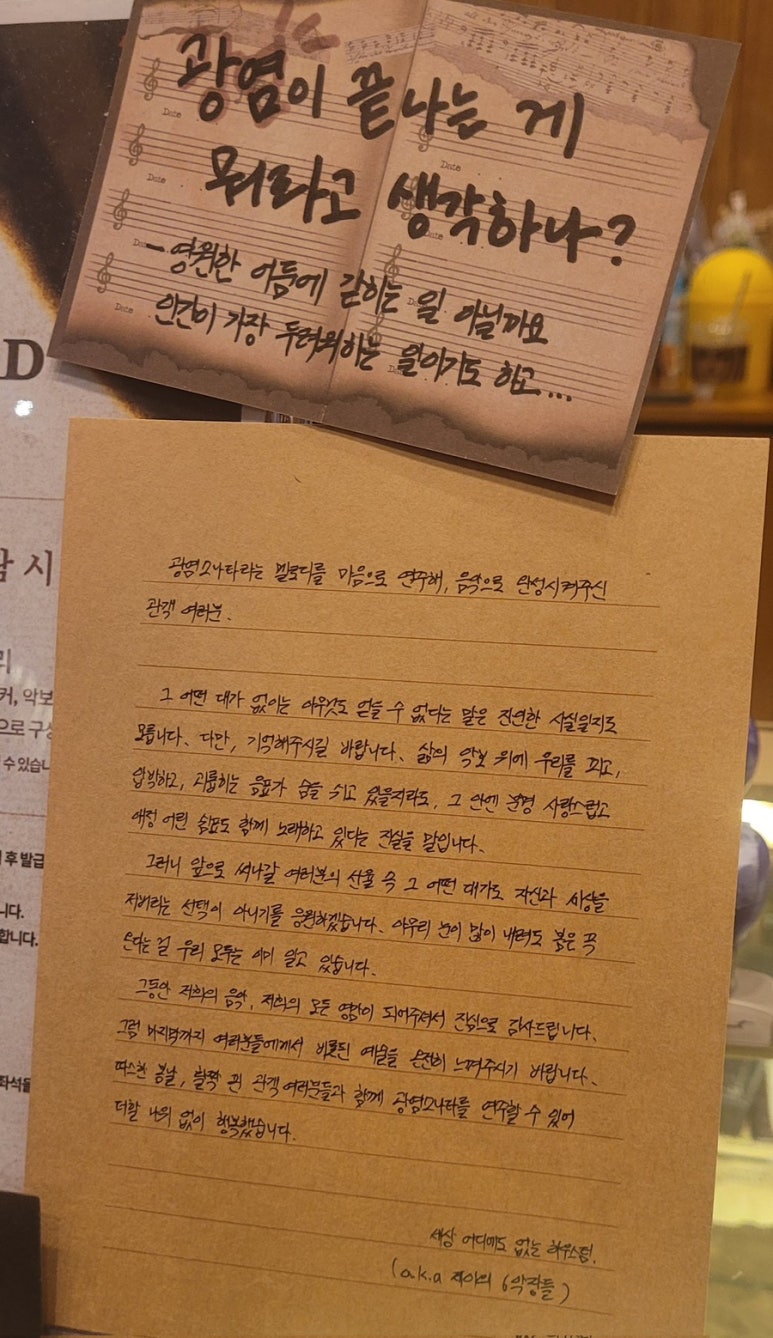 광염이 끝나는 게
뭐라고 생각하나?
- 영원한 어둠에 갇히는 일 아닐까요
인간이 가장 두려워하는 일이기도 하고...
Date
Date
Date
Date
Date
Date
AD
람 시
리
커, 악보
으로 구성
수 있습니
후 발급
니다.
합니다.
좌석을
광염소나타라는 멜로디를 마음으로 연주해, 음악으로 완성시켜주신
관객 여러분.
그 어떤 대가 없이는 아무것도 얻을 수 없다는 말은 잔인한 사실일지도
모릅니다. 다만, 기억해주시길 바랍니다. 삶의 악보 위에 우리를 찌르고,
압박하고, 괴롭히는 음표가 숨을 쉬고 있을지라도, 그 안엔 분명 사랑스럽고
애정 어린 쉼표도 함께 노래하고 있다는 진실을 말입니다.
그러니 앞으로 써나갈 여러분의 선율 속 그 어떤 대가도 자신과 세상을
저버리는 선택이 아니기를 응원하겠습니다. 아무리 눈이 많이 내려도 봄은 꼭
온다는 걸 우리 모두는 이미 알고 있습니다.
그동안 저희의 음악, 저희의 모든 영감이 되어주셔서 진심으로 감사드립니다.
그럼 마지막까지 여러분들에게서 비롯된 예술을 온전히 느껴주시기 바랍니다.
따스한 봄날, 활짝 핀 관객 여러분들과 함께 광염소나타를 연주할 수 있어
더할 나위 없이 행복했습니다.
세상 어디에도 없는 하우스팀.
(a.k.a 제야의 6악장들)